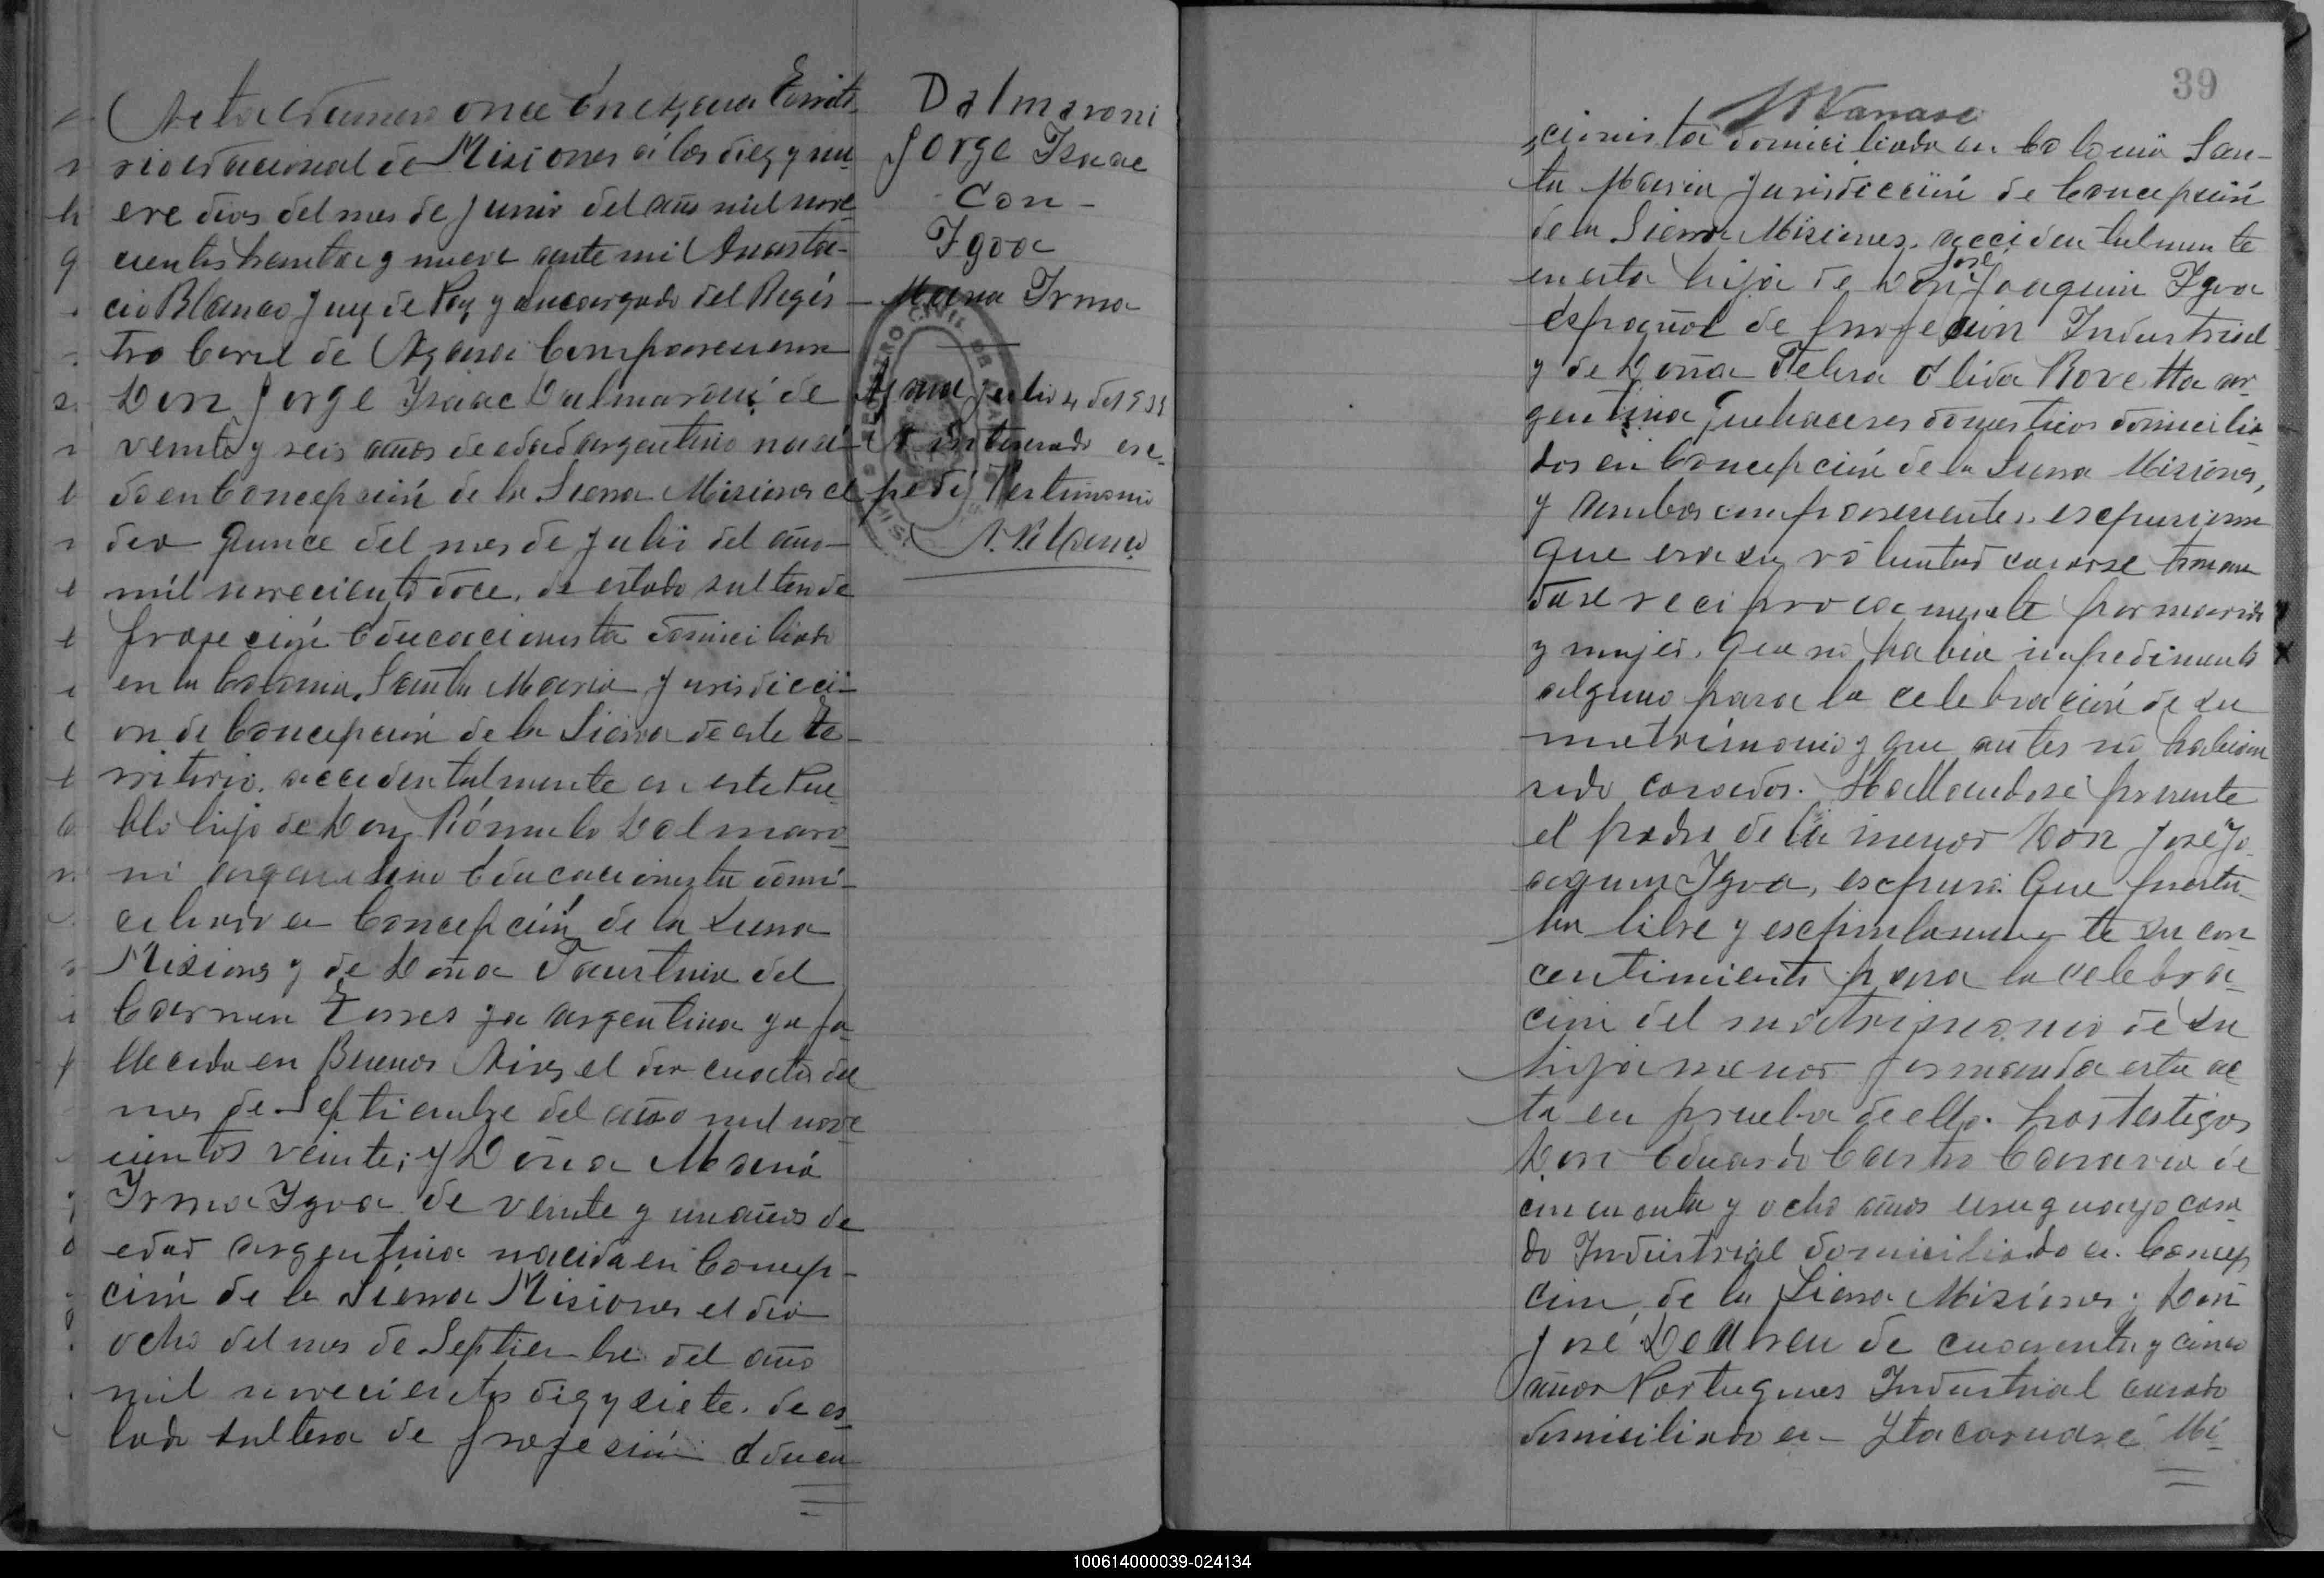 Acta número once En Azara Territo
rio Nacional de Misiones á los diez y nu
eve dias del mes de Junio del año mil nove
cientos treinta y nueve ante mi Anasta-
cio Blanco Juez de Paz y encargado del Regis
tro Civil de Azara Comparecieron
Don Jorge Isaac Dalmaroni de
veinte y seis años de edad argentino naci-
do en Concepción de la Sierra Misiones el
dia quince del mes de Julio del año
mil novecientos doce, de estado soltero de
profeción Educacionista domiciliado
en la Colonia Santa Maria Jurisdicci-
on de Concepción de la Sierra de este te-
rritorio. accidentalmente en este Pue
blo hijo de Don Rómulo Dalmaro
ni argentino Educacionista domi-
ciliado en Concepción de la Sierra
Misiones y de Doña Faustina del
Carmen Torres ya argentina ya fa
llecida en Buenos Aires el dia cuatro del
mes de Septiembre del año mil nove
cientos veinte; y Doña Maria
Irma Igoa de veinte y un años de
edad argentina nacida en Concep-
ción de la Sierra Misiones el dia
ocho del mes de Septiembre del año
mil novecientos diez y siete. de es
tado soltera de profesión Educa
Dalmaroni
Jorge Isaac
Con-
Igoa
Maria Irma
REGISTRO CIVIL DE
Azara Julio 4 de 1939
A interesado ex-
pedi Testimonio
A. Blanco
39
cionista domiciliada en Colonia San-
ta Maria Jurisdicción de Concepción
de la Sierra Misiones. accidentalmente
en esta hija de Don José Joaquin Igoa
español de profesión Industrial
y de Doña Felisa Olida Rovetta ar
gentina Quehaceres domesticos domicilia
dos en Concepción de la Sierra Misiones,
y ambos comparecientes expusieron
Que era su voluntad casarse toman
dose reciprocamente por marido
y mujer. Que no habia impedimento
alguno para la celebración de su
matrimonio y que antes no habian
sido casados. Hallandose presente
el padre de la menor Don José Jo
aquin Igoa, expuso: Que presta
ba libre y
centimiento para la celebra
ción del matrimonio de su
hija menor firmando esta ac
ta en prueba de ello. Los testigos
Don Eduardo Castro Canavia de
cincuenta y ocho años uruguayo casa
do Industrial domiciliado en Concep
ción de la Sierra Misiones y Don
José de Abreu de cuarenta y cinco
años Portugues Industrial casado
domiciliado en Itacaruaré Mi
100614000039-024134